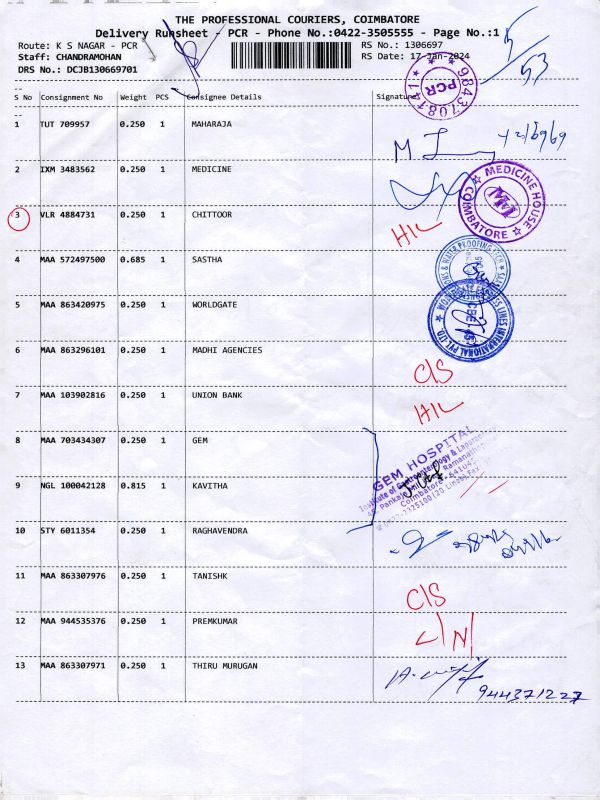 THE PROFESSIONAL COURIERS, COIMBATORE
Delivery Runsheet - PCR - Phone No.:0422-3505555 - Page No.:1
Route: K S NAGAR - PCR
RS No.: 1306697
Staff: CHANDRAMOHAN
RS Date: 17-Jan-2024
DRS No.: DCJB130669701
5/53
9843708741
PCR
S No Consignment No Weight PCS Consignee Details Signature
1 TUT 709957 0.250 1 MAHARAJA
2 IXM 3483562 0.250 1 MEDICINE
MEDICINE HOUSE
MM
COIMBATORE
3 VLR 4884731 0.250 1 CHITTOOR H/L
4 MAA 572497500 0.685 1 SASTHA
5 MAA 863420975 0.250 1 WORLDGATE
LINES INTERNATIONAL PVT LTD
6 MAA 863296101 0.250 1 MADHI AGENCIES C/S
7 MAA 103902816 0.250 1 UNION BANK H/L
8 MAA 703434307 0.250 1 GEM
GEM HOSPITAL
Institute of Gastroenterology &
Coimbatore
9 NGL 100042128 0.815 1 KAVITHA
10 STY 6011354 0.250 1 RAGHAVENDRA
11 MAA 863307976 0.250 1 TANISHK C/S
12 MAA 944535376 0.250 1 PREMKUMAR L/N/
13 MAA 863307971 0.250 1 THIRU MURUGAN